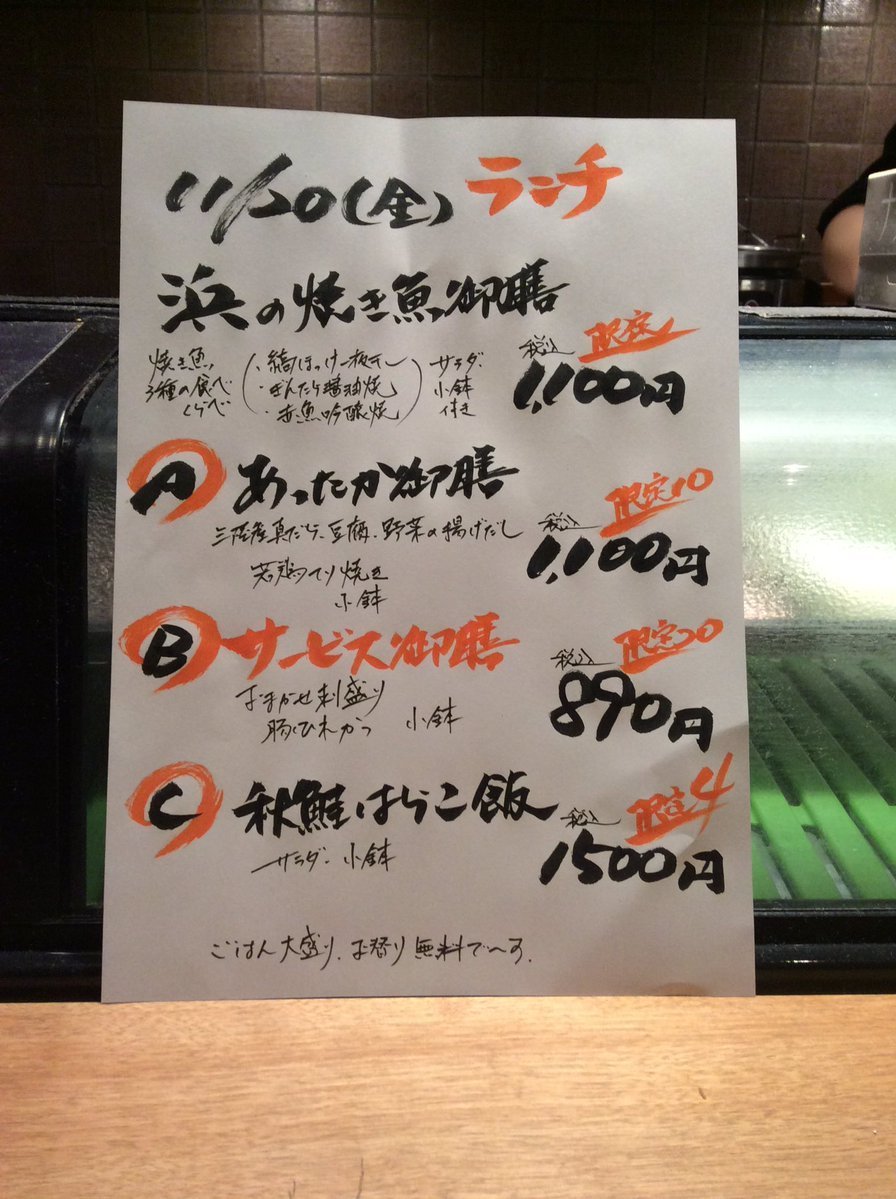 11/20(金) ランチ
浜の焼き魚御膳
税込 限定
1,100円
焼き魚
3種の食べ
くらべ
・縞ほっけ一夜干し
・ぎんだら醤油焼
・赤魚吟醸焼
サラダ
小鉢
付き
A あったか御膳
税込 限定10
1,100円
三陸産真だら、豆腐、野菜の揚げだし
若鶏てり焼き
小鉢
B サービス御膳
税込 限定20
890円
おまかせ刺盛り
豚ひれかつ 小鉢
C 秋鮭はらこ飯
税込 限定4
1500円
サラダ 小鉢
ごはん大盛り、お替り無料で〜す。